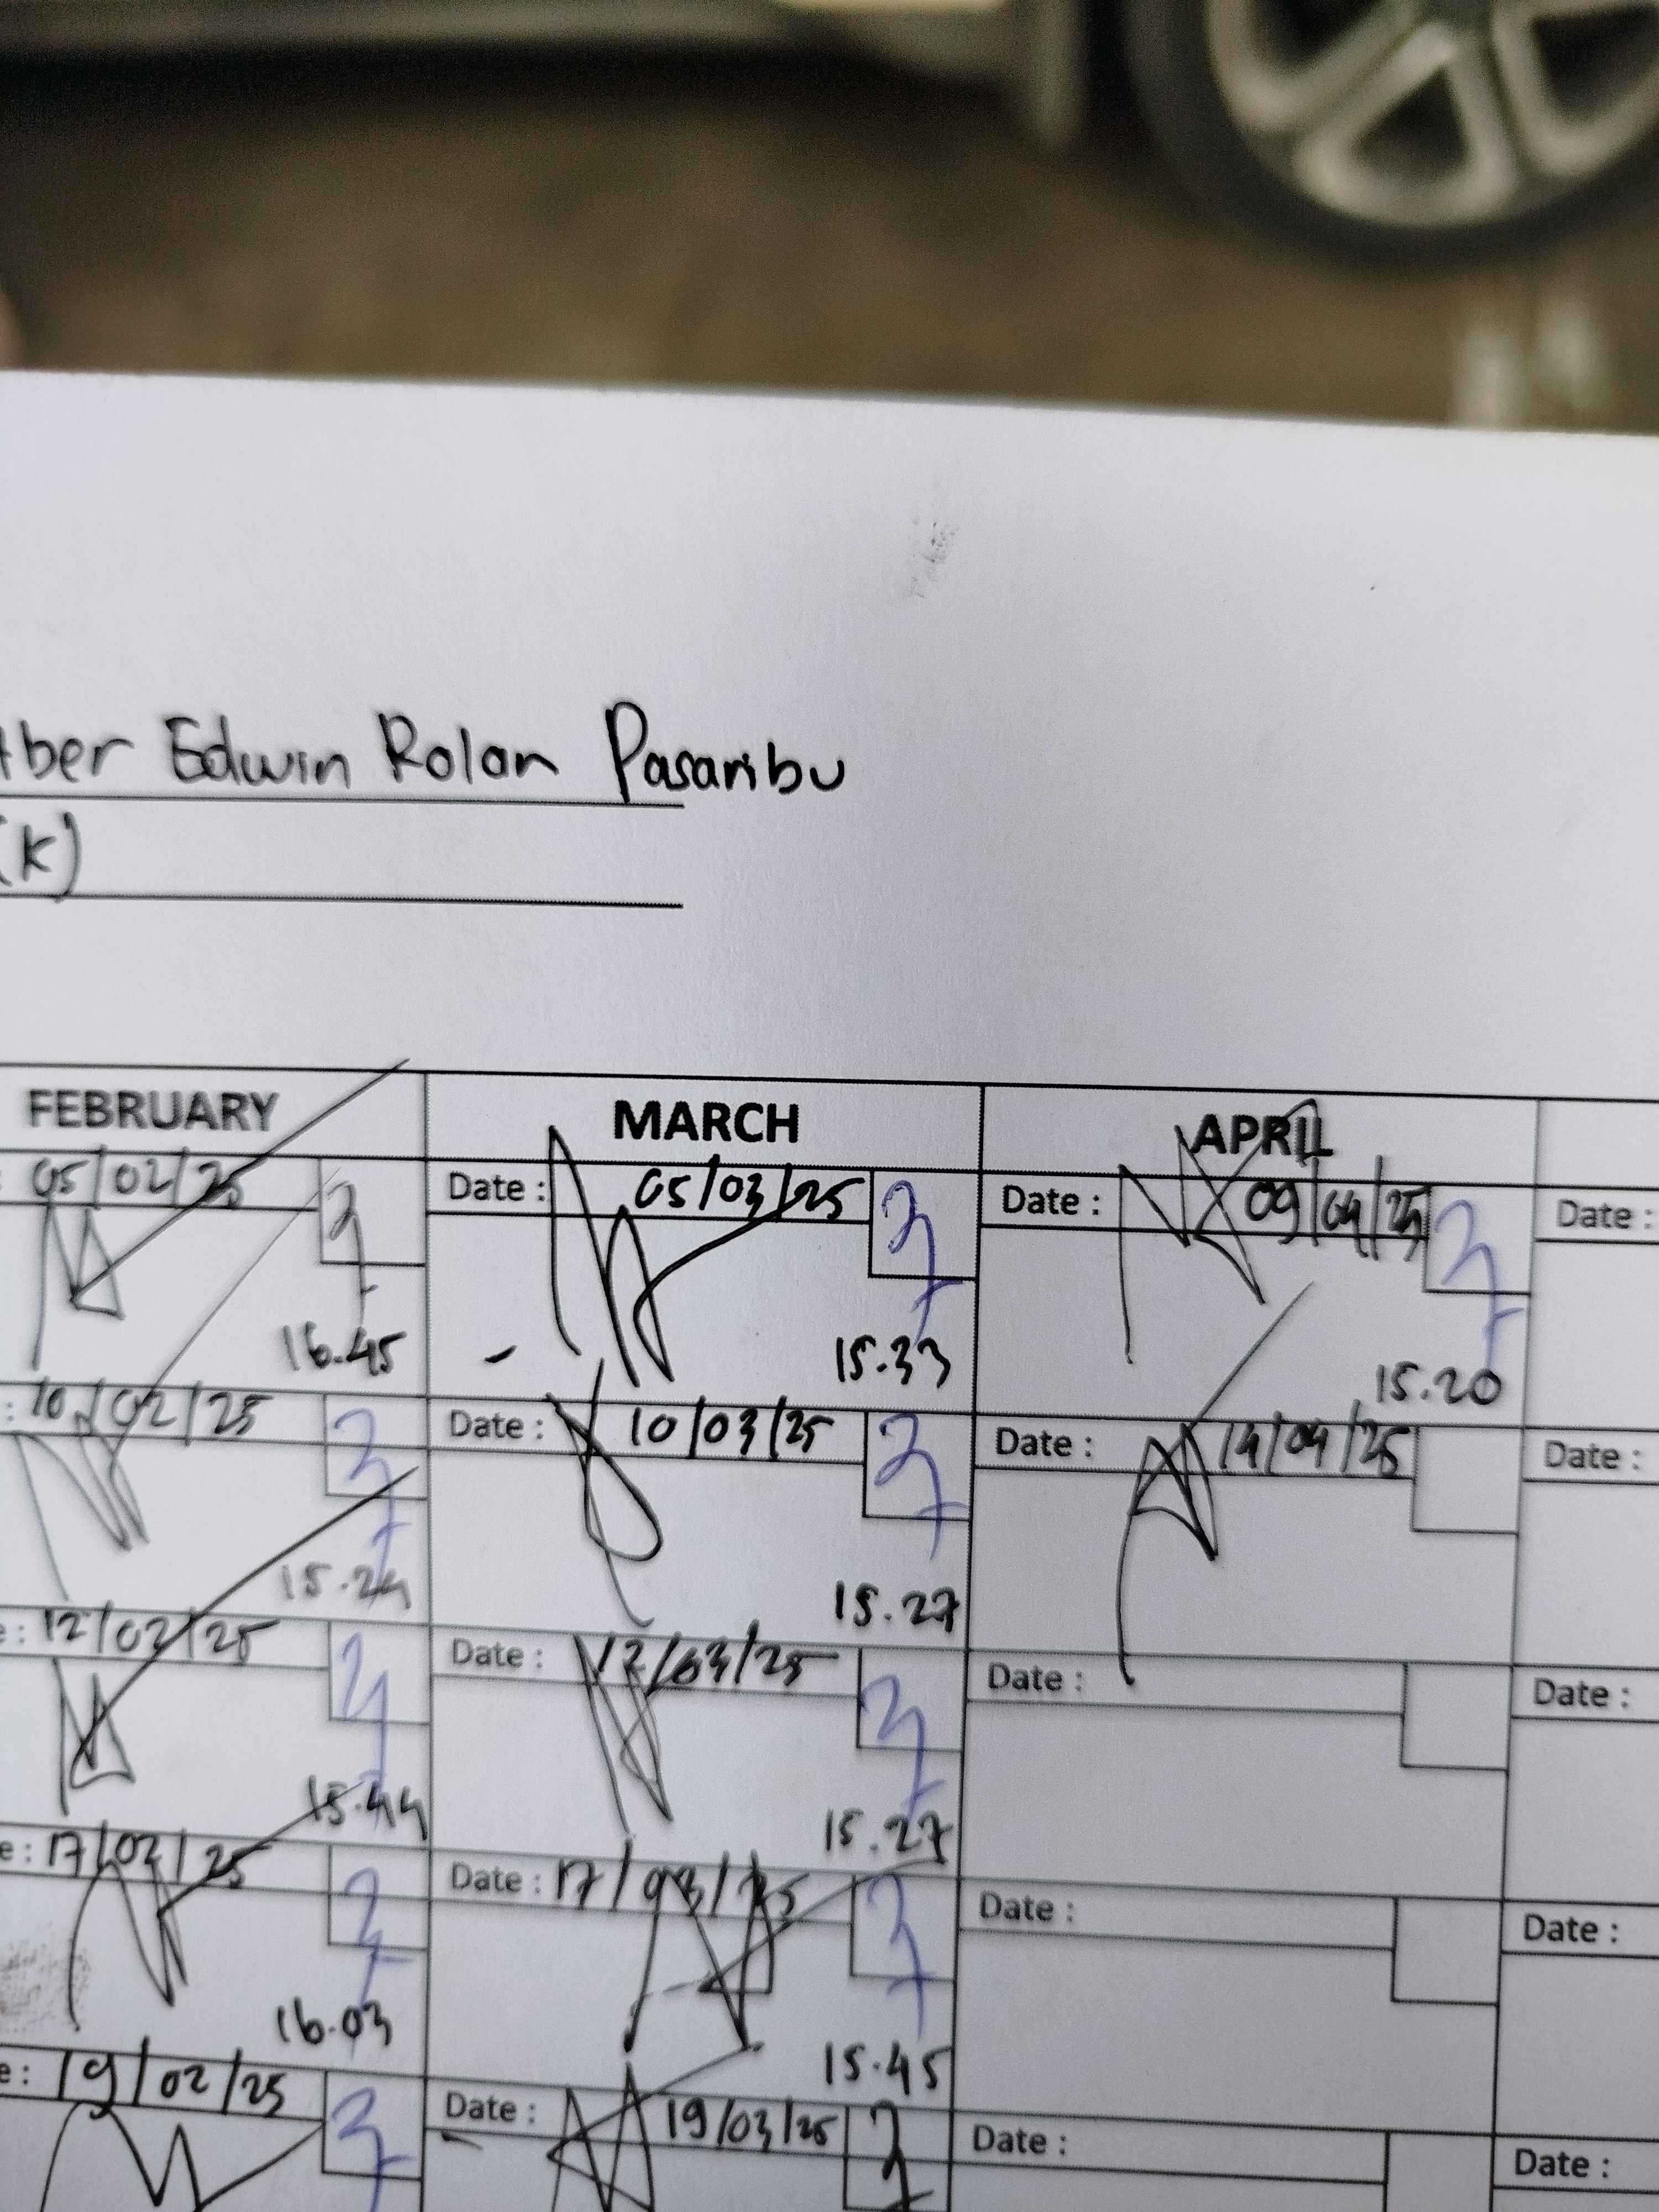 Edwin Rolan Pasaribu
(K)
FEBRUARY MARCH APRIL
05/02/25 Date : 05/03/25 Date : 09/04/25 Date :
16.45 15.33 15.20
: 10/02/25 Date : 10/03/25 Date : 14/04/25 Date :
15.24 15.27
e : 12/02/25 Date : 12/03/25 Date : Date :
15.44 15.27
e : 17/02/25 Date : 17/03/25 Date : Date :
16.03 15.45
e : 19/02/25 Date : 19/03/25 Date : Date :